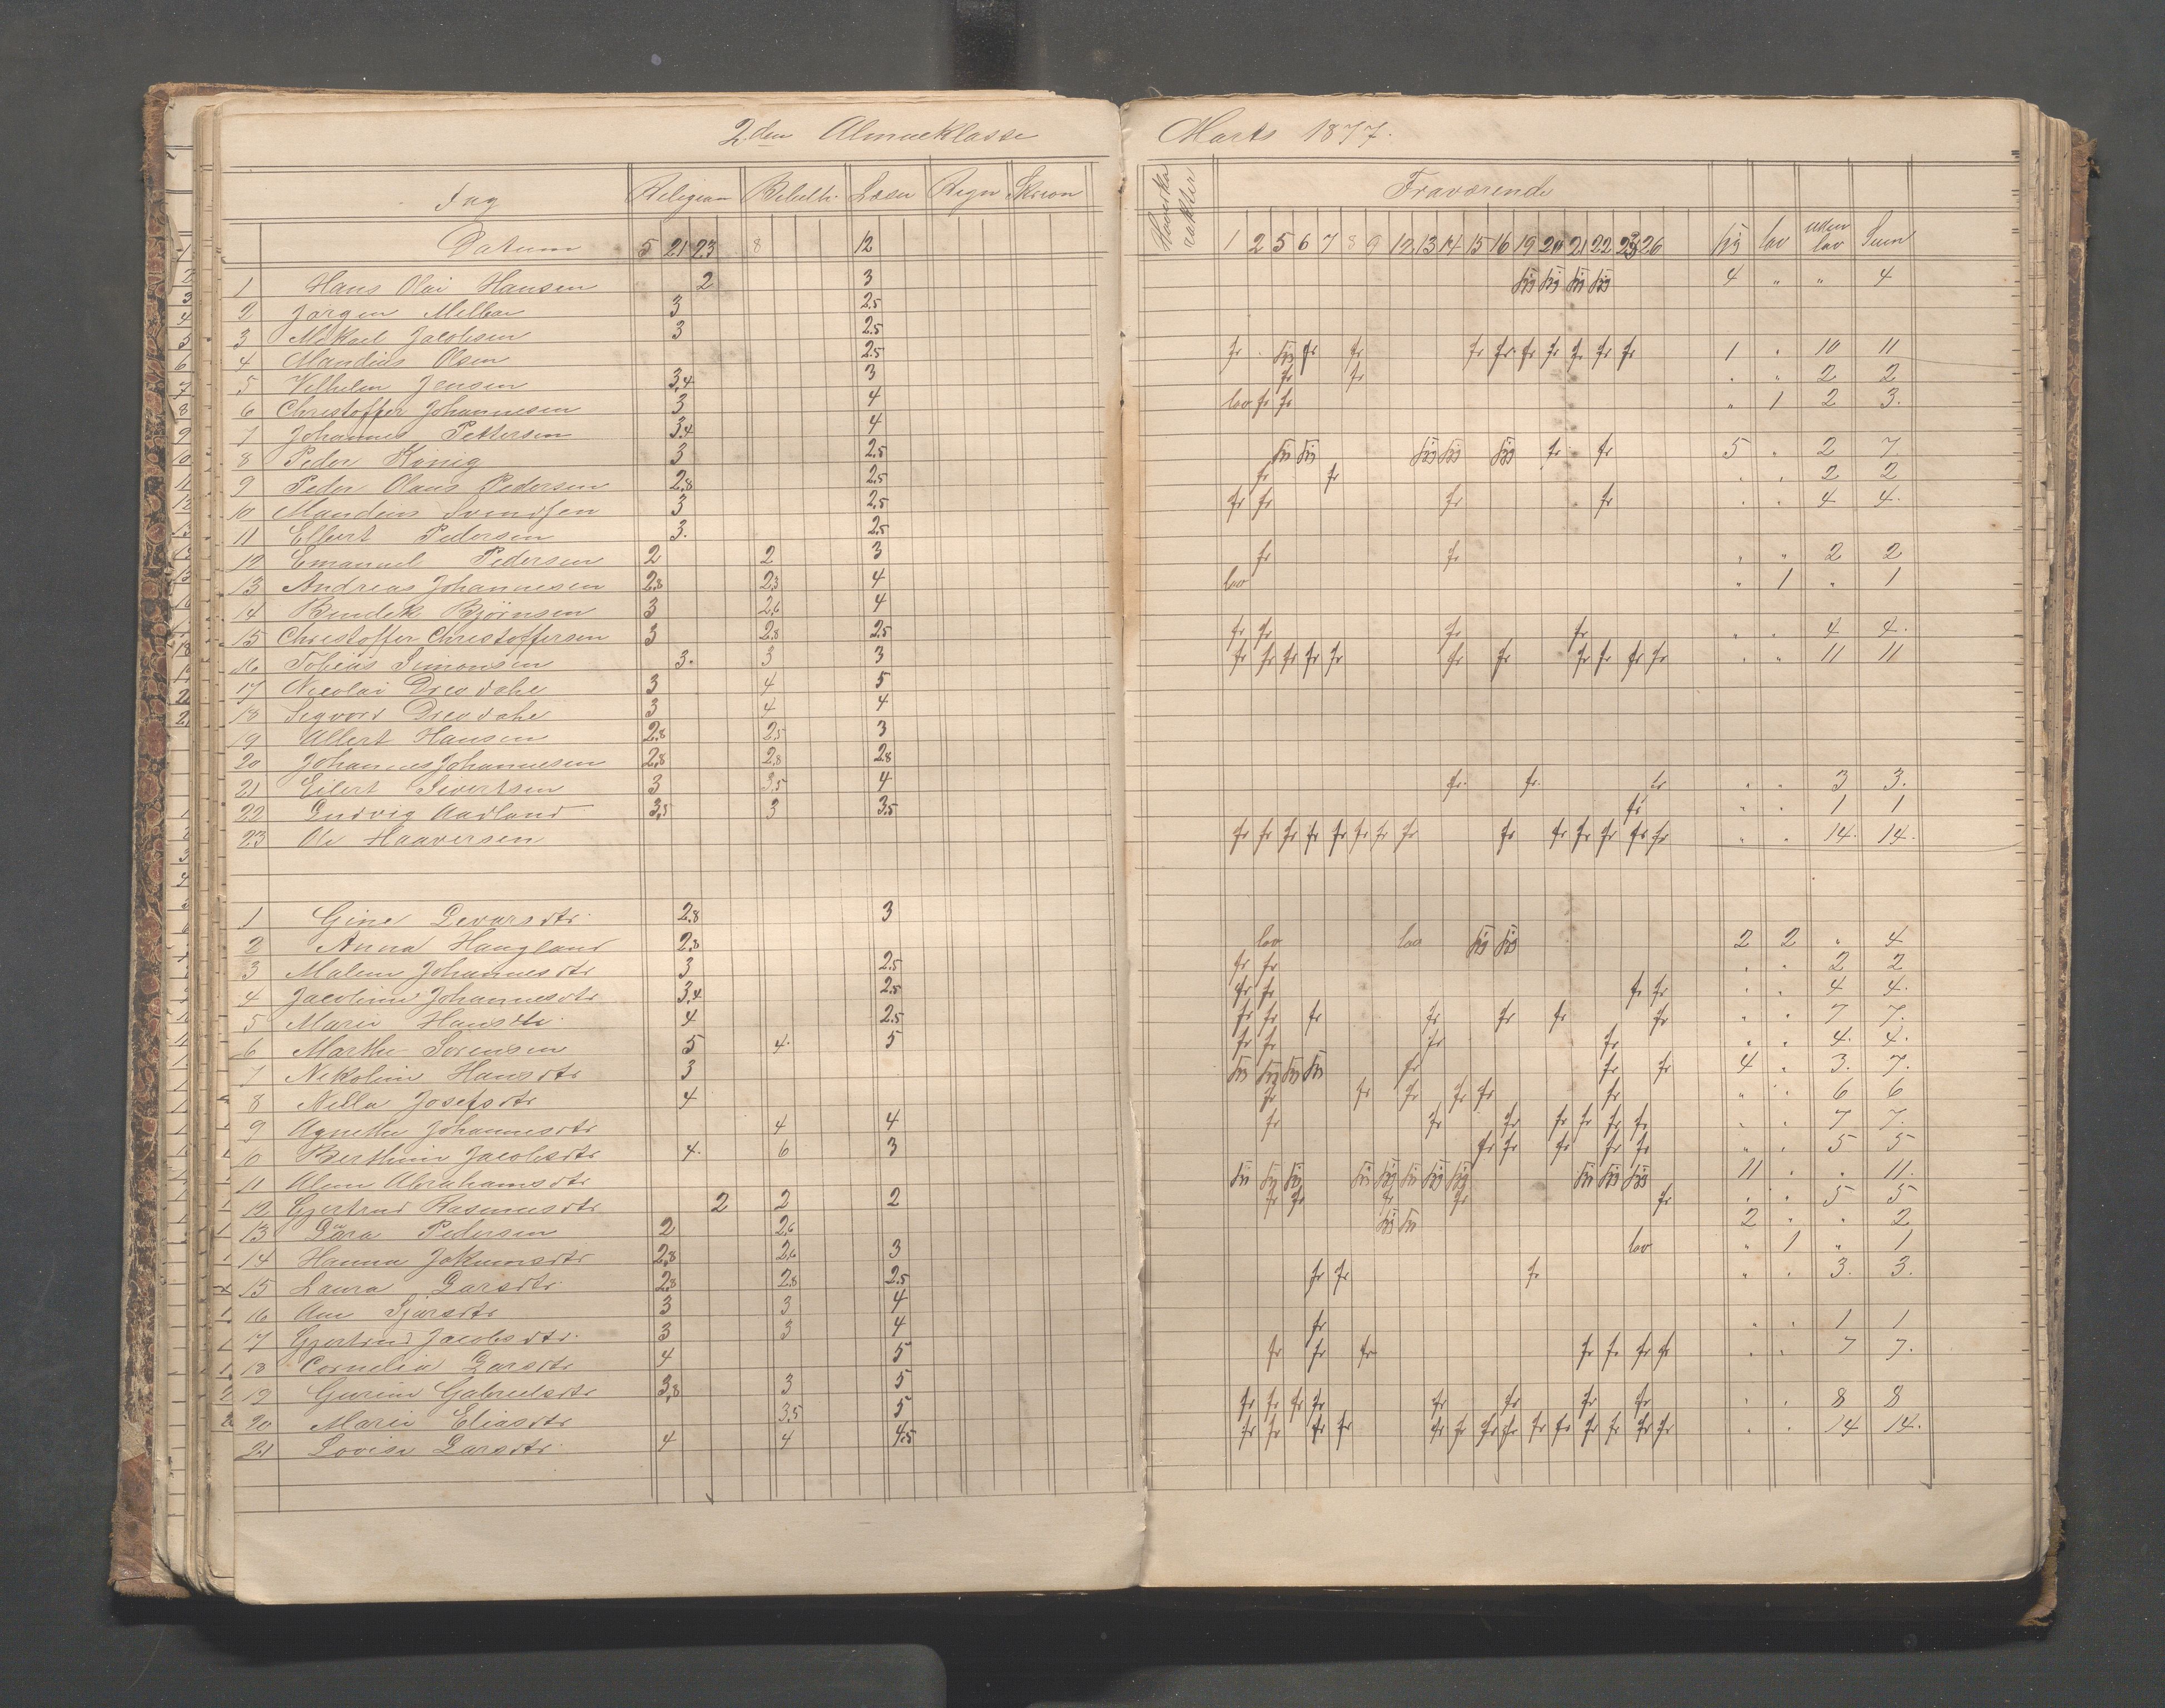 2den Almueklasse
Marts 1877.
Religion Læsn Regn Skrivn
Fraværende
Datum 5 21 23 8 12
1 2 5 6 7 8 9 12 13 14 15 16 19 20 21 22 23 26 syg lov uden lov Sum
1 Hans Olai Hansen 2 3 syg syg syg syg 4 " " 4
2 Jørgen 3 2.5
3 Mikael Jacobsen 3 2.5
4 Mandius Olsen 2.5 fr syg fr fr fr fr fr fr fr fr fr 1 " 10 11
5 Vilhelm Jensen 3.4 3 fr fr " " 2 2
6 Christoffer Johannesen 3 4 lov fr fr " 1 2 3.
7 Johannes Pettersen 3.4 4
8 Peder König 3 2.5 syg syg syg syg syg fr fr 5 " 2 7
9 Peder Olaus Pedersen 2.8 2.5 fr fr " " 2 2
10 Mandius Svendsen 3 2.5 fr fr fr fr " " 4 4.
11 Ellert Pedersen 3. 2.5
12 Emanuel Pedersen 2 2 3 fr fr " " 2 2
13 Andreas Johannesen 2.8 2.3 4 lov " 1 " 1
14 Bendik Bjørnsen 3 2.6 4
15 Christoffer Christoffersen 3 2.8 2.5 fr fr fr fr " " 4 4.
16 Tobias Simonsen 3. 3 3 fr fr fr fr fr fr fr fr fr fr fr " " 11 11
17 Nicolai 3 4 5
18 3 4 4
19 Albert Hansen 2.8 2.5 3
20 Johannes Johannesen 2.8 2.8 2.8
21 Eilert Sivertsen 3 3.5 4 fr fr fr " " 3 3.
22 Ludvig Aadland 3.5 3 3.5 fr " " 1 1
23 Ole Haaversen fr fr fr fr fr fr fr fr fr fr fr fr fr fr " " 14. 14.
1 Gine 2.8 3
2 Anna Haugland 2.8 lov lov syg syg 2 2 " 4
3 Malene Johannesdtr 3 2.5 fr fr " " 2 2
4 Jacobine Johannesdtr 3.4 2.5 fr fr fr fr " " 4 4.
5 Marie Hansdtr 4 2.5 fr fr fr fr fr fr fr " " 7 7.
6 Marthe Sørensen 5 4. 5 fr fr fr fr " " 4. 4.
7 Nikoline Hansdtr 3 syg syg syg syg fr fr fr 4 " 3. 7.
8 Nella Josefsdtr 4 fr fr fr fr fr fr " " 6 6
9 Agnethe Johannesdtr 4 4 fr fr fr fr fr fr fr " " 7 7.
10 Berthine Jacobsdtr 4. 6 3 fr fr fr fr fr " " 5 5
11 Abrahamsdtr syg syg syg syg syg syg syg syg syg syg syg 11 " " 11.
12 Gjertrud Rasmusdtr 2 2 2 fr fr fr fr fr " " 5 5
13 Pedersen 2 2.6 syg syg 2 " " 2
14 Hanna Jokumsdtr 2.8 2.6 3 lov " 1 " 1
15 Laura Larsdtr 2.8 2.8 2.5 fr fr fr " " 3. 3.
16 Ane 3 3 4
17 Gjertrud Jacobsdtr. 3 3 4 fr " " 1 1
18 Cornelia Larsdtr 4 5 fr fr fr fr fr fr fr " " 7 7.
19 Gurine Gabrielsdtr 3.8 3 5 fr fr fr fr fr fr fr fr " " 8 8
20 Marie Eliasdtr 3.5 5 fr fr fr fr fr fr fr fr fr fr fr fr fr fr " " 14 14.
21 Lovise Larsdtr. 4 4 4.5